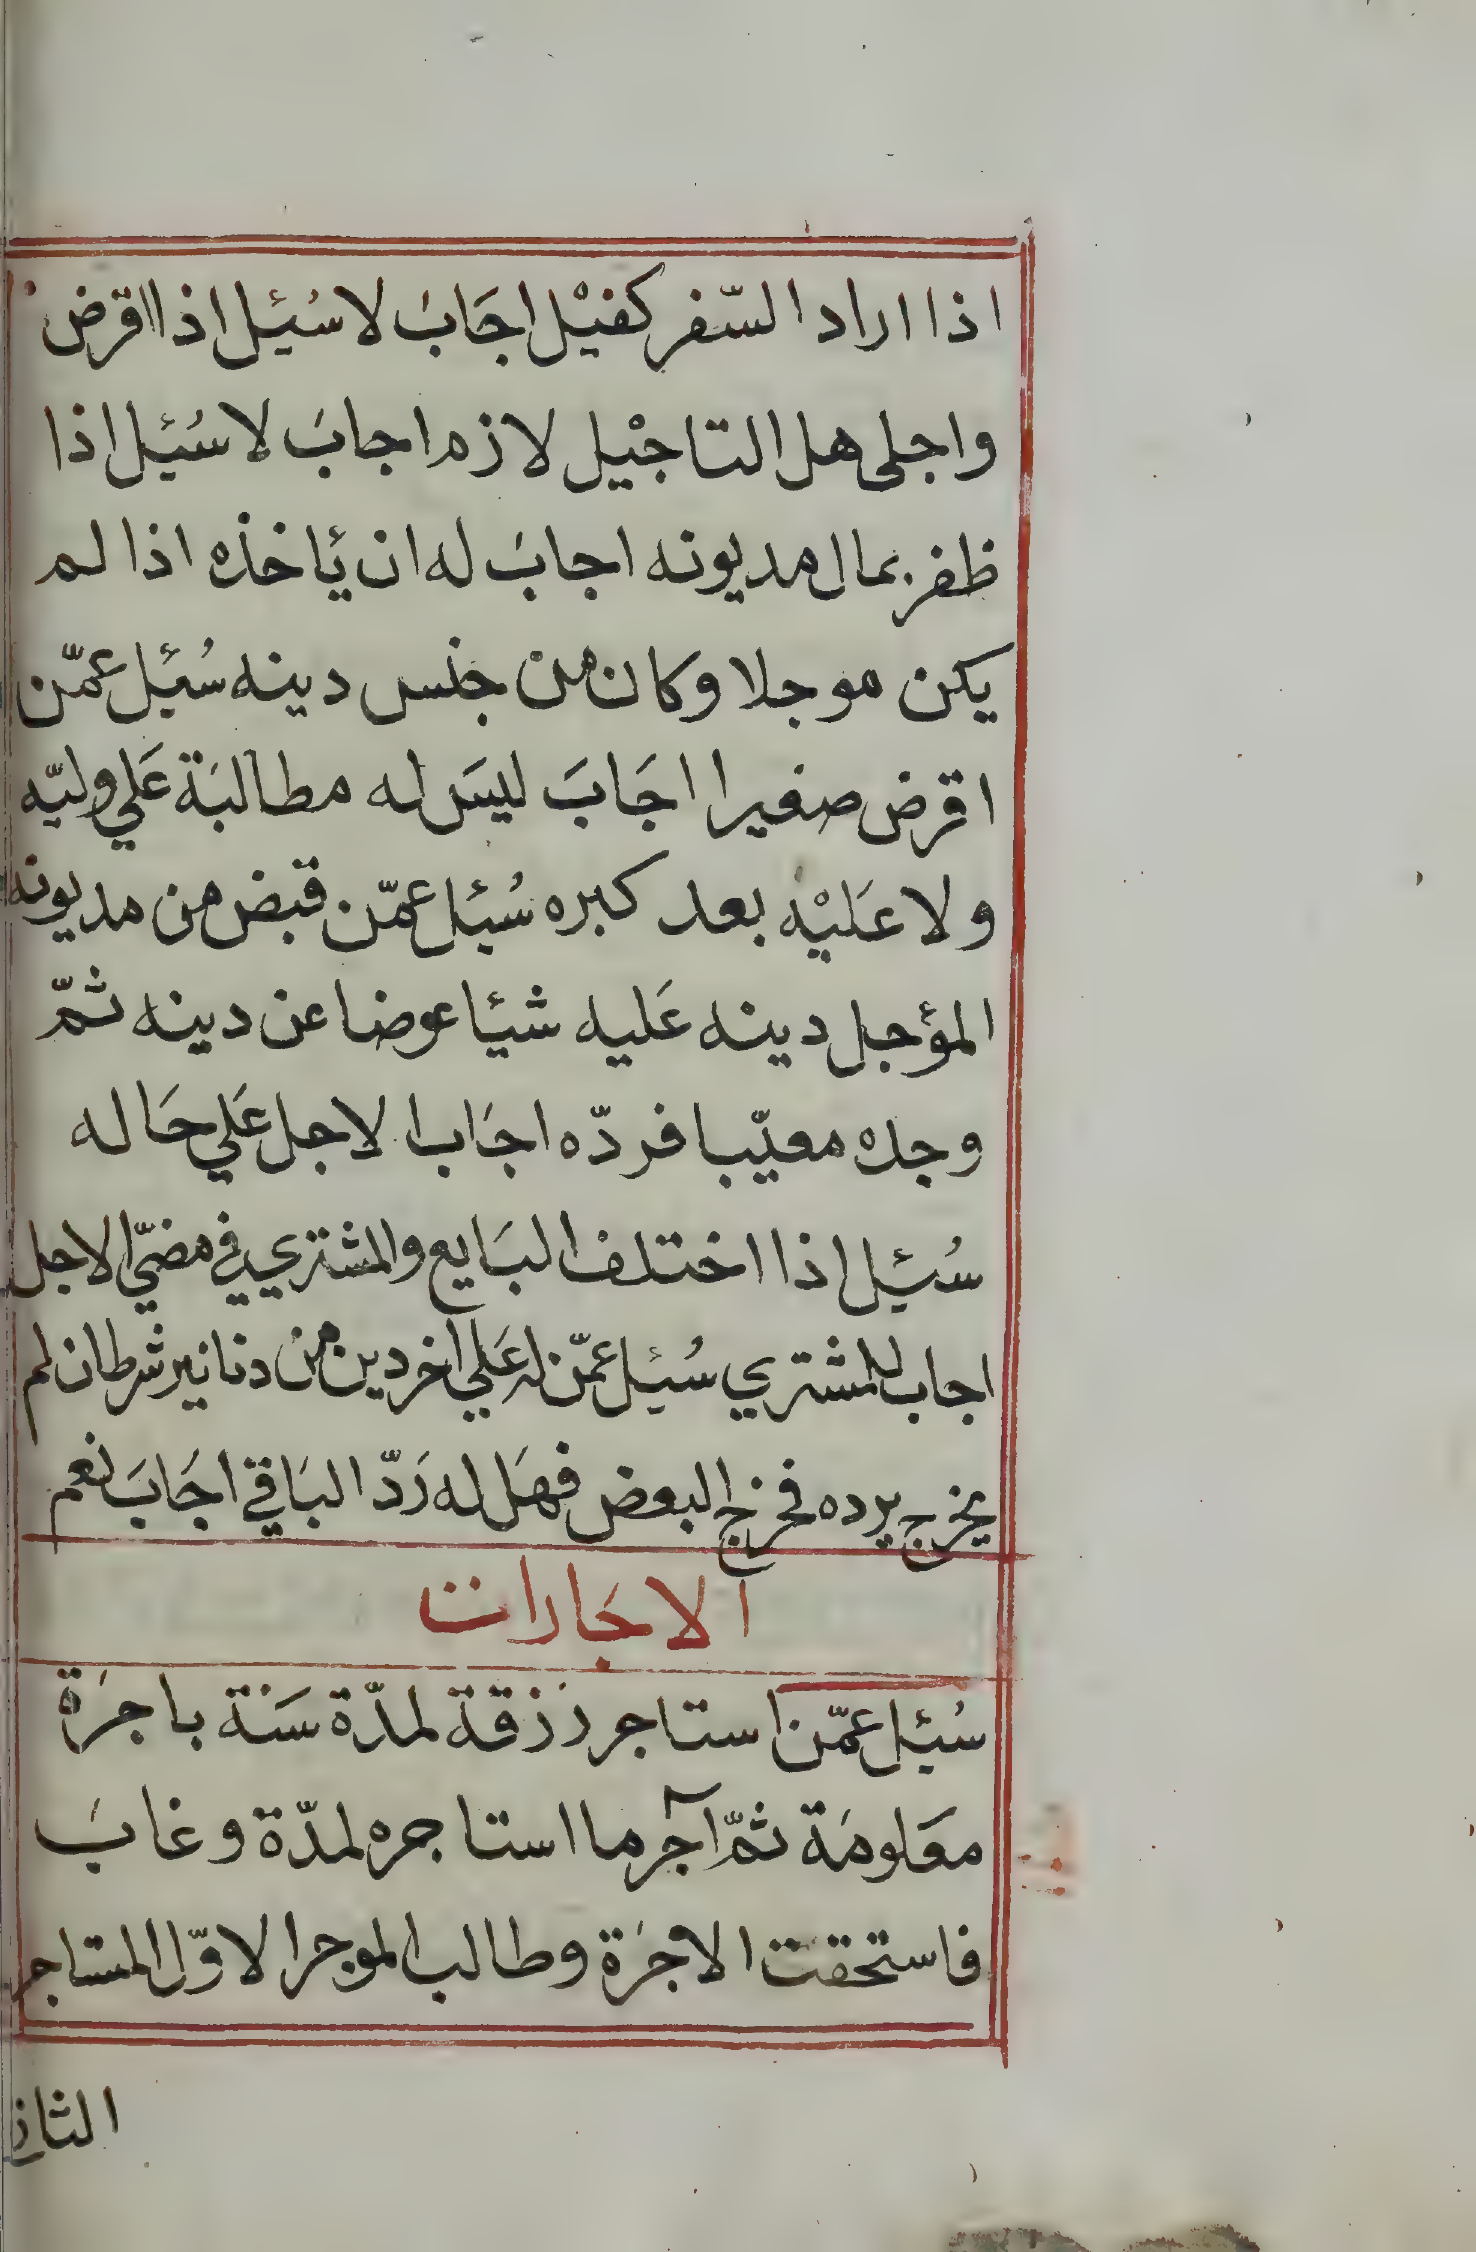 اذا اراد السّفر كفيْل اجَابَ لا سُئِل اذا اقرض
واجلى هل التاجيْل لازم اجابَ لا سُئِل اذا
ظفر بمال مديونه اجابَ له ان ئاخذه اذا لم
يكن موجلا وكان منْ جنْس دينه سُئِل عمّن
اقرض صغيرا اجَابَ ليسَ له مطالبَة عَلي وليّه
ولا عَليْه بعد كبره سُئِل عمّن قبض من مديونه
المؤجل دينه عَليه شيئا عوضا عن دينه ثمّ
وجده معيّبا فردّه اجَاب الاجل عَلي حَاله
سُئِل اذا اختلف البَايع والمشتري في مضيّ الاجل
اجاب للمشتري سُئِل عمّن له عَلي آخر دين منْ دنانير شرط ان لم
يخرج يرده فخرج البعض فهَل له رَدّ البَاقي اجَابَ نعم
الاجَارات
سُئِل عمّن استاجر رزقة لمدّة سَنة باجرَة
معَلومَة ثمّ آجر ما استاجره لمدّة وغابَ
فاستحقت الاجرَة وطالب الموجر الاوّل المستاجر
الثاني